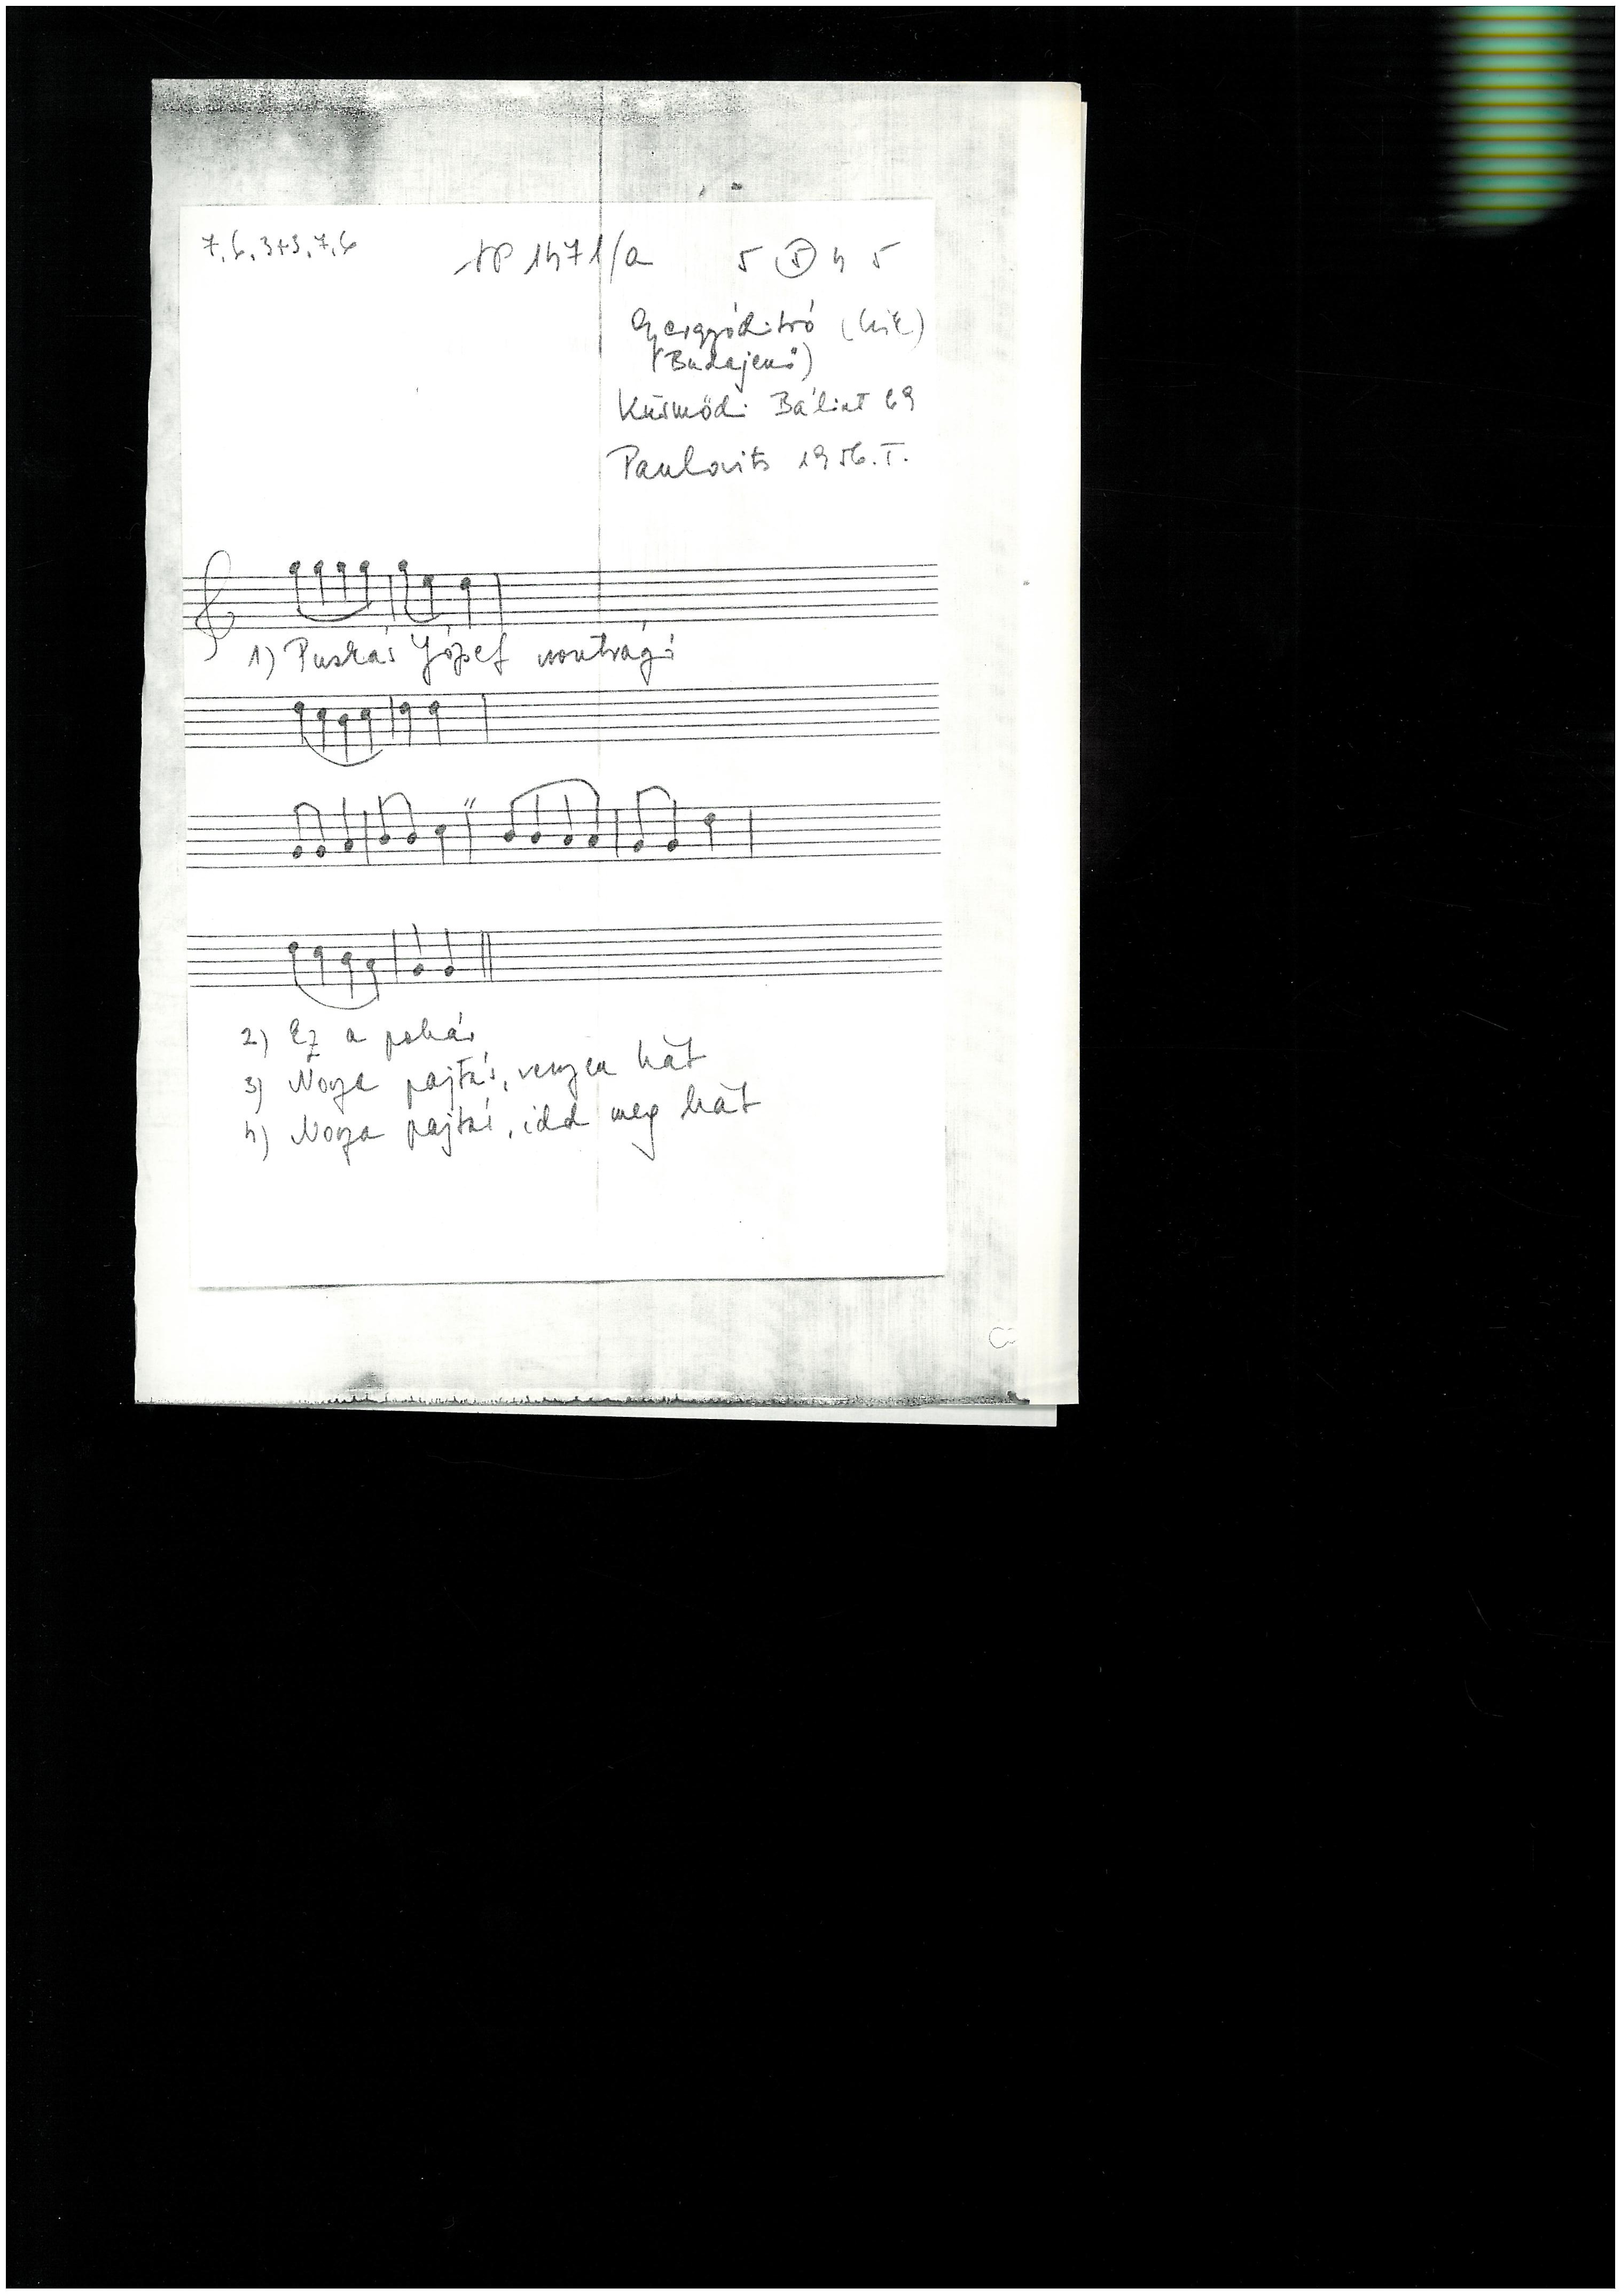 7, 6, 3+3, 7, 6
AP 1471/a
5 5 4 5
Gyergyóditró (Csík)
(Budajenő)
Küsmödi Bálint 69
Paulovits 1956. I.
1) Puskás József
2) Ez a pohár
3) Nosza pajtás, vegyen hát
4) Nosza pajtás, idd meg hát